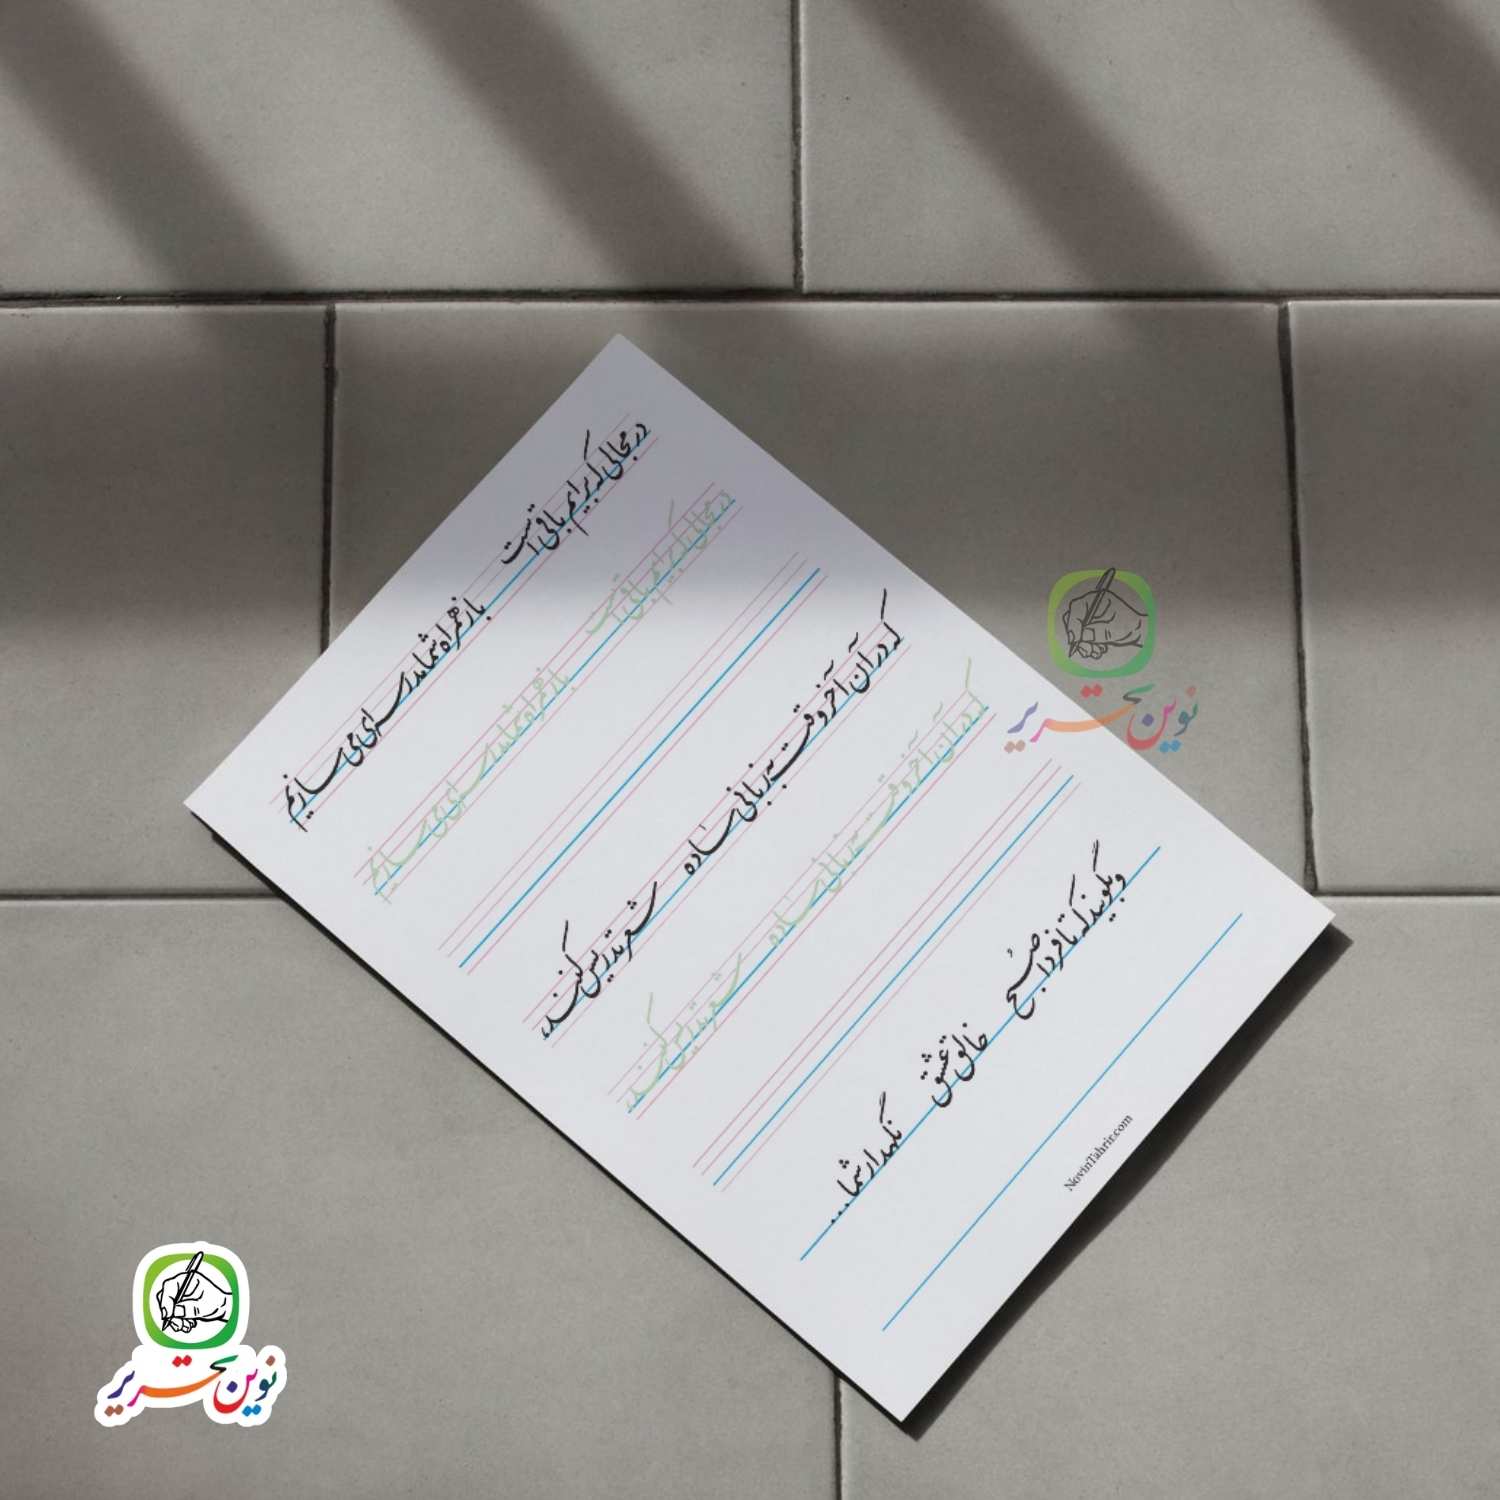 در مجالی که برایم باقی است باز همراه شما مدرسه‌ای می‌سازیم
در مجالی که برایم باقی است باز همراه شما مدرسه‌ای می‌سازیم
که در آن آخر وقت به زبانی ساده شعر تدریس کنند،
که در آن آخر وقت به زبانی ساده شعر تدریس کنند،
و بگویند که تا فردا صبح خالق عشق نگهدار شما...
NovinTahrir.com
نوین تحریر
نوین تحریر